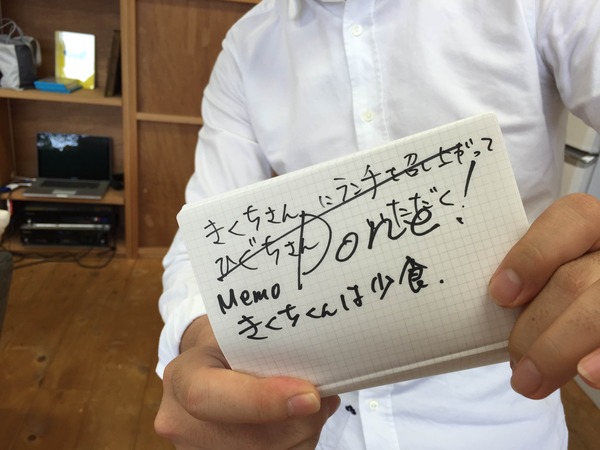 きくちさん にランチを召し上がって
ひぐちさん いただく!
Done
Memo
きくちくんは少食.